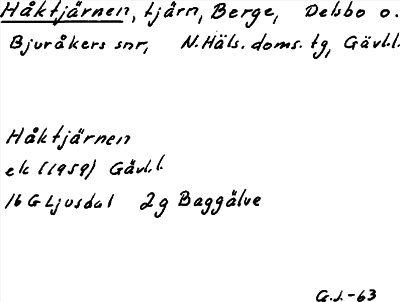 Håktjärnen, tjärn, Berge, Delsbo o.
Bjuråkers snr, N.Häls. doms. tg, Gävl.l.
Håktjärnen
ek (1959) Gävl.l.
16 G Ljusdal 2 g Baggälve
G.J.-63